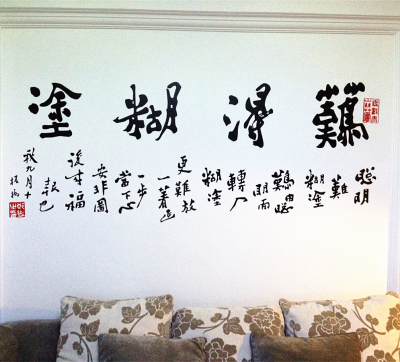 難得糊塗
聰明
難
糊塗
難由聰
明而
轉入
糊塗
更難放
一着退
一步
當下心
安非圖
後來福
報也
秋九月十
板橋